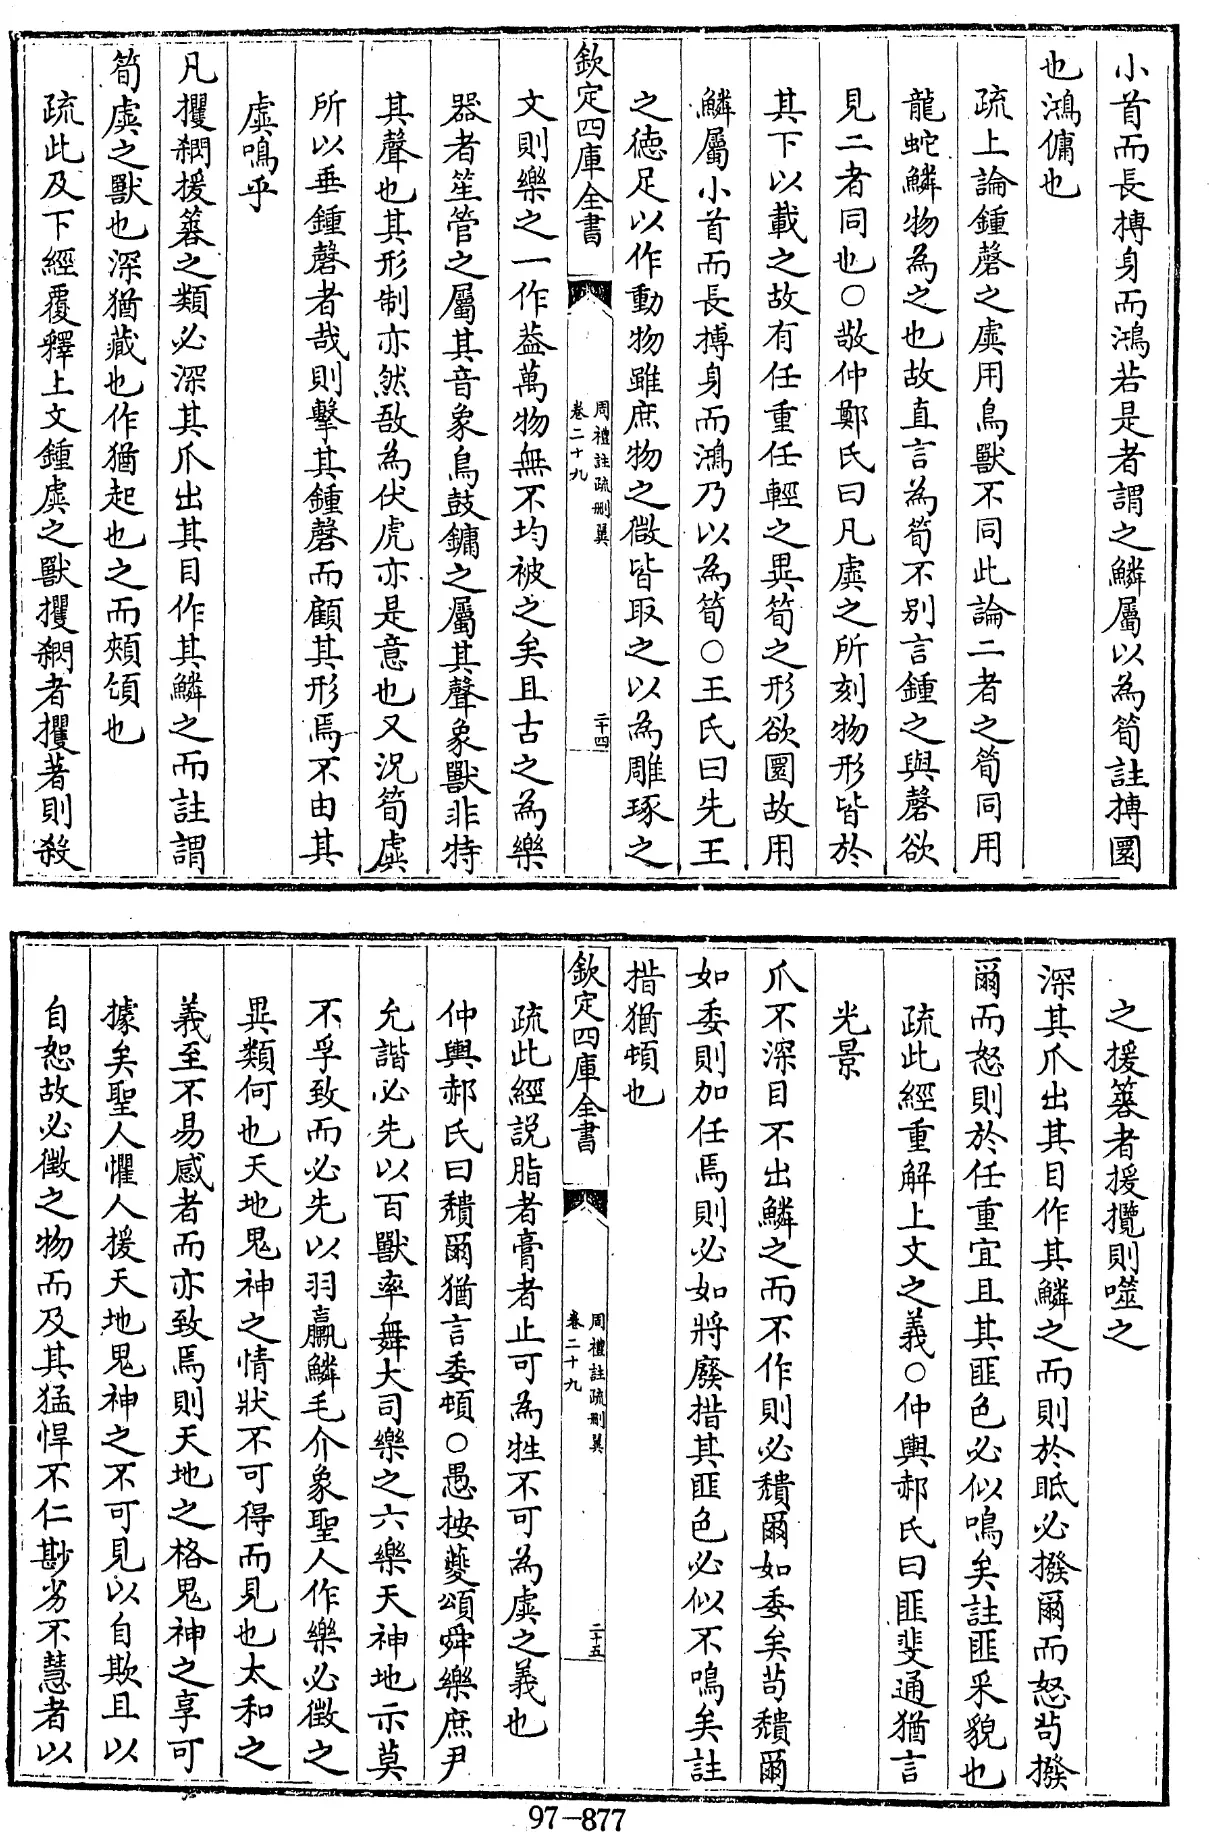 小首而長搏身而鴻若是者謂之鱗屬以為筍註搏圜
也鴻傭也
疏上論鍾磬之虡用鳥獸不同此論二者之筍同用
龍蛇鱗物為之也故直言為筍不别言鍾之與磬欲
見二者同也○敬仲鄭氏曰凡虡之所刻物形皆於
其下以載之故有任重任輕之異筍之形欲圜故用
鱗屬小首而長搏身而鴻乃以為筍○王氏曰先王
之徳足以作動物雖庶物之微皆取之以為雕琢之
欽定四庫全書
周禮註疏刪翼
卷二十九
二十四
文則樂之一作葢萬物無不均被之矣且古之為樂
器者笙管之屬其音象鳥鼓鏞之屬其聲象獸非特
其聲也其形制亦然敔為伏虎亦是意也又況筍虡
所以垂鍾磬者哉則擊其鍾磬而顧其形焉不由其
虡鳴乎
凡攫網援簭之類必深其爪出其目作其鱗之而註謂
筍虡之獸也深猶藏也作猶起也之而頰頎也
疏此及下經覆釋上文鍾虡之獸攫網者攫著則殺
之援簭者援攬則噬之
深其爪出其目作其鱗之而則於眡必撥爾而怒茍撥
爾而怒則於任重宜且其匪色必似鳴矣註匪采貌也
疏此經重解上文之義○仲輿郝氏曰匪斐通猶言
光景
爪不深目不出鱗之而不作則必穨爾如委矣茍穨爾
如委則加任焉則必如將廢措其匪色必似不鳴矣註
措猶頓也
欽定四庫全書
周禮註疏刪翼
卷二十九
二十五
疏此經説脂者膏者止可為牲不可為虡之義也
仲輿郝氏曰穨爾猶言委頓○愚按夔頌舜樂庶尹
允諧必先以百獸率舞大司樂之六樂天神地示莫
不孚致而必先以羽臝鱗毛介象聖人作樂必徵之
異類何也天地鬼神之情狀不可得而見也太和之
義至不易感者而亦致焉則天地之格鬼神之享可
據矣聖人懼人援天地鬼神之不可見以自欺且以
自恕故必徵之物而及其猛悍不仁尠劣不慧者以
97-877